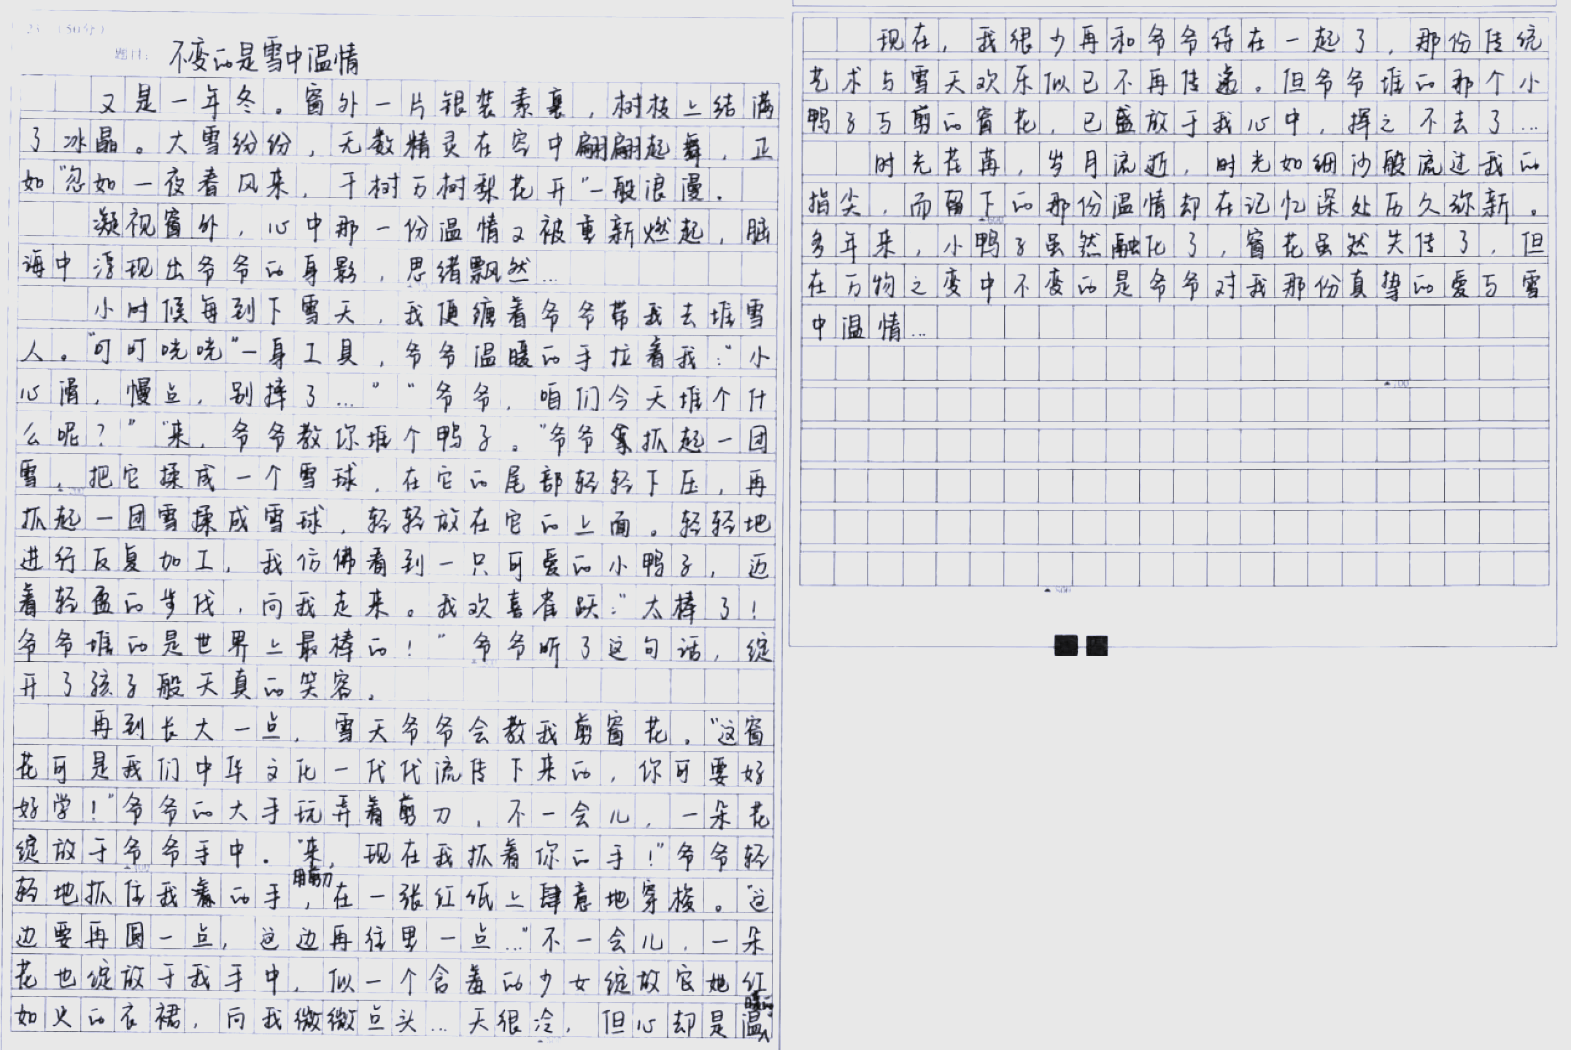 23 (50分)
题目: 不变的是雪中温情
又是一年冬。窗外一片银装素裹，树枝上结满
了冰晶。大雪纷纷，无数精灵在空中翩翩起舞，正
如“忽如一夜春风来，千树万树梨花开”一般浪漫。
凝视窗外，心中那一份温情又被重新燃起，脑
海中浮现出爷爷的身影，思绪飘然…
小时候每到下雪天，我便缠着爷爷带我去堆雪
人。“叮叮咣咣”一身工具，爷爷温暖的手拉着我：“小
心滑，慢点，别摔了…”“爷爷，咱们今天堆个什
么呢？”“来，爷爷教你堆个鸭子。”爷爷抓起一团
雪，把它揉成一个雪球，在它的尾部轻轻下压，再
抓起一团雪揉成雪球，轻轻放在它的上面。轻轻地
进行反复加工，我仿佛看到一只可爱的小鸭子，迈
着轻盈的步伐，向我走来。我欢喜雀跃：“太棒了！
爷爷堆的是世界上最棒的！”爷爷听了这句话，绽
开了孩子般天真的笑容。
再到长大一点，雪天爷爷会教我剪窗花。“这窗
花可是我们中华文化一代代流传下来的，你可要好
好学！”爷爷的大手玩弄着剪刀，不一会儿，一朵花
绽放于爷爷手中。“来，现在我抓着你的手！”爷爷轻
轻地抓住我的手用剪刀，在一张红纸上肆意地穿梭。“这
边要再圆一点，这边再往里一点…”不一会儿，一朵
花也绽放于我手中，似一个含羞的少女绽放它她红
如火的衣裙，向我微微点头…天很冷，但心却是温暖的
现在，我很少再和爷爷待在一起了，那份传统
艺术与雪天欢乐似已不再传递。但爷爷堆的那个小
鸭子与剪的窗花，已盛放于我心中，挥之不去了…
时光荏苒，岁月流逝，时光如细沙般流过我的
指尖，而留下的那份温情却在记忆深处历久弥新。
多年来，小鸭子虽然融化了，窗花虽然失传了，但
在万物之变中不变的是爷爷对我那份真挚的爱与雪
中温情…